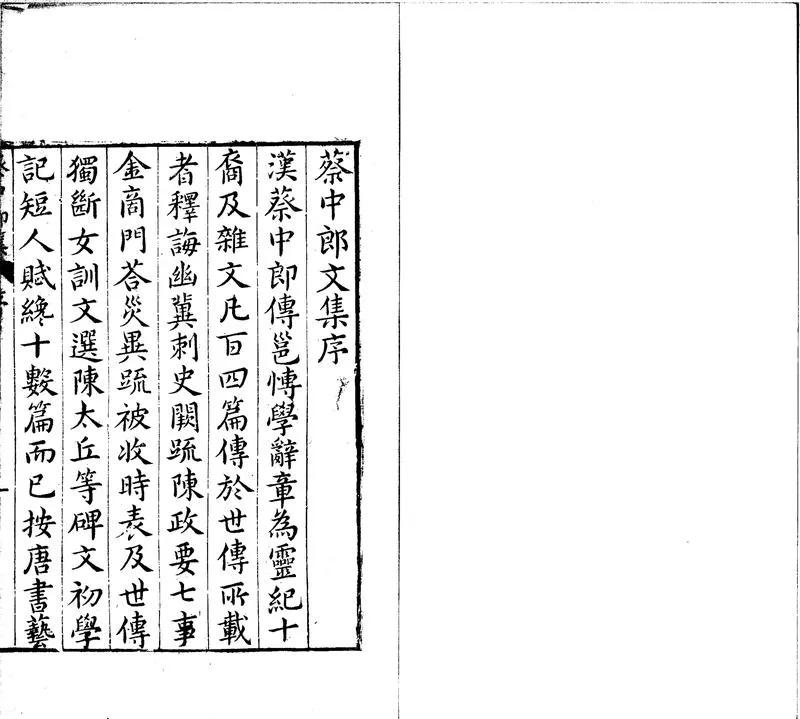 蔡中郎文集序
漢蔡中郎傳邕愽學辭章為靈紀十
裔及雜文凡百四篇傳於世傳所載
者釋誨幽冀刺史闕䟽陳政要七事
金啇門荅災異䟽被收時表及世傳
獨斷女訓文選陳太丘等碑文初學
記短人賦纔十數篇而已按唐書藝